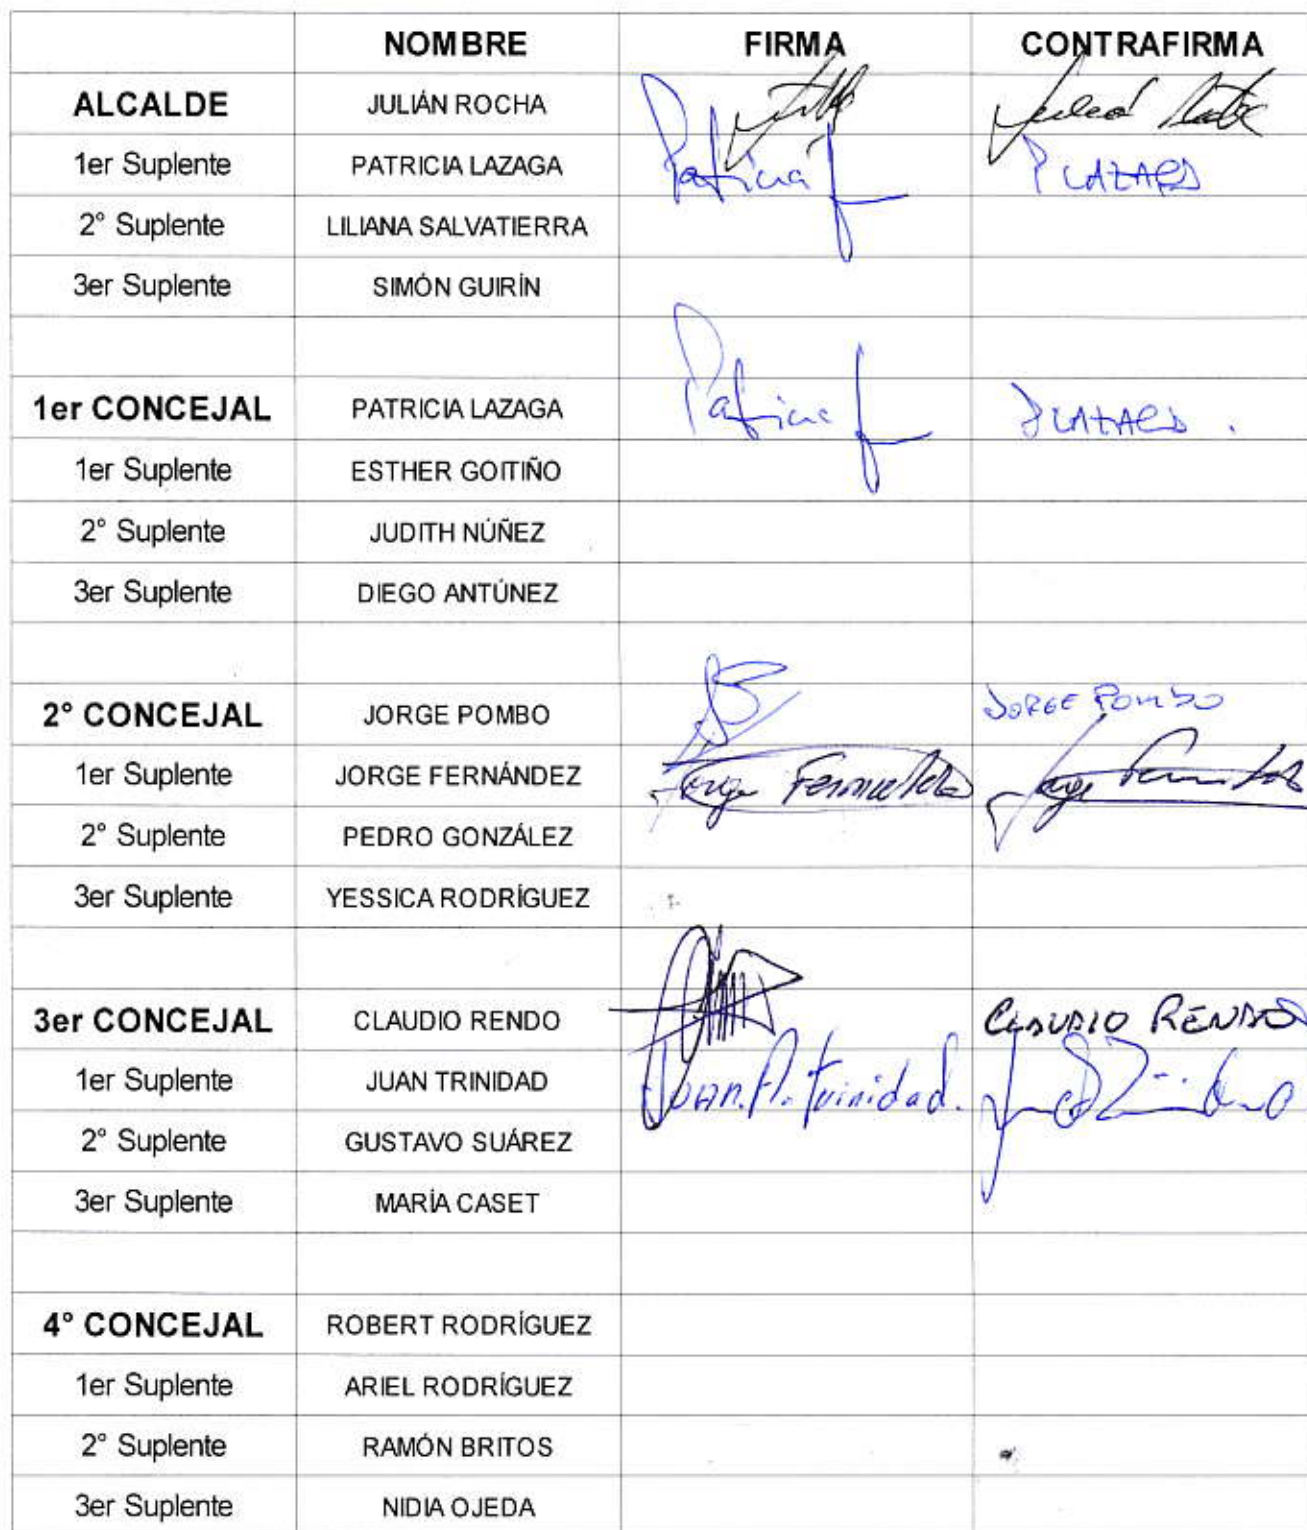 NOMBRE FIRMA CONTRAFIRMA
ALCALDE JULIÁN ROCHA
1er Suplente PATRICIA LAZAGA Patricia L P LAZAGA
2° Suplente LILIANA SALVATIERRA
3er Suplente SIMÓN GUIRÍN
1er CONCEJAL PATRICIA LAZAGA Patricia L
1er Suplente ESTHER GOITIÑO
2° Suplente JUDITH NÚÑEZ
3er Suplente DIEGO ANTÚNEZ
2° CONCEJAL JORGE POMBO JORGE POMBO
1er Suplente JORGE FERNÁNDEZ Jorge Jorge
2° Suplente PEDRO GONZÁLEZ
3er Suplente YESSICA RODRÍGUEZ
3er CONCEJAL CLAUDIO RENDO CLAUDIO RENDO
1er Suplente JUAN TRINIDAD Juan. A. Trinidad.
2° Suplente GUSTAVO SUÁREZ
3er Suplente MARÍA CASET
4° CONCEJAL ROBERT RODRÍGUEZ
1er Suplente ARIEL RODRÍGUEZ
2° Suplente RAMÓN BRITOS
3er Suplente NIDIA OJEDA